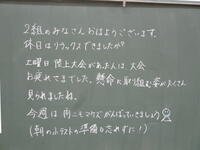 2組のみなさんおはようございます。
休日はリラックスできましたか?
土曜日陸上大会があった人は、大会
お疲れさまでした。懸命に取り組む姿がたくさん
見られましたね。
今週は
がんばっていきましょう
(朝の
の準備も忘れずに!)